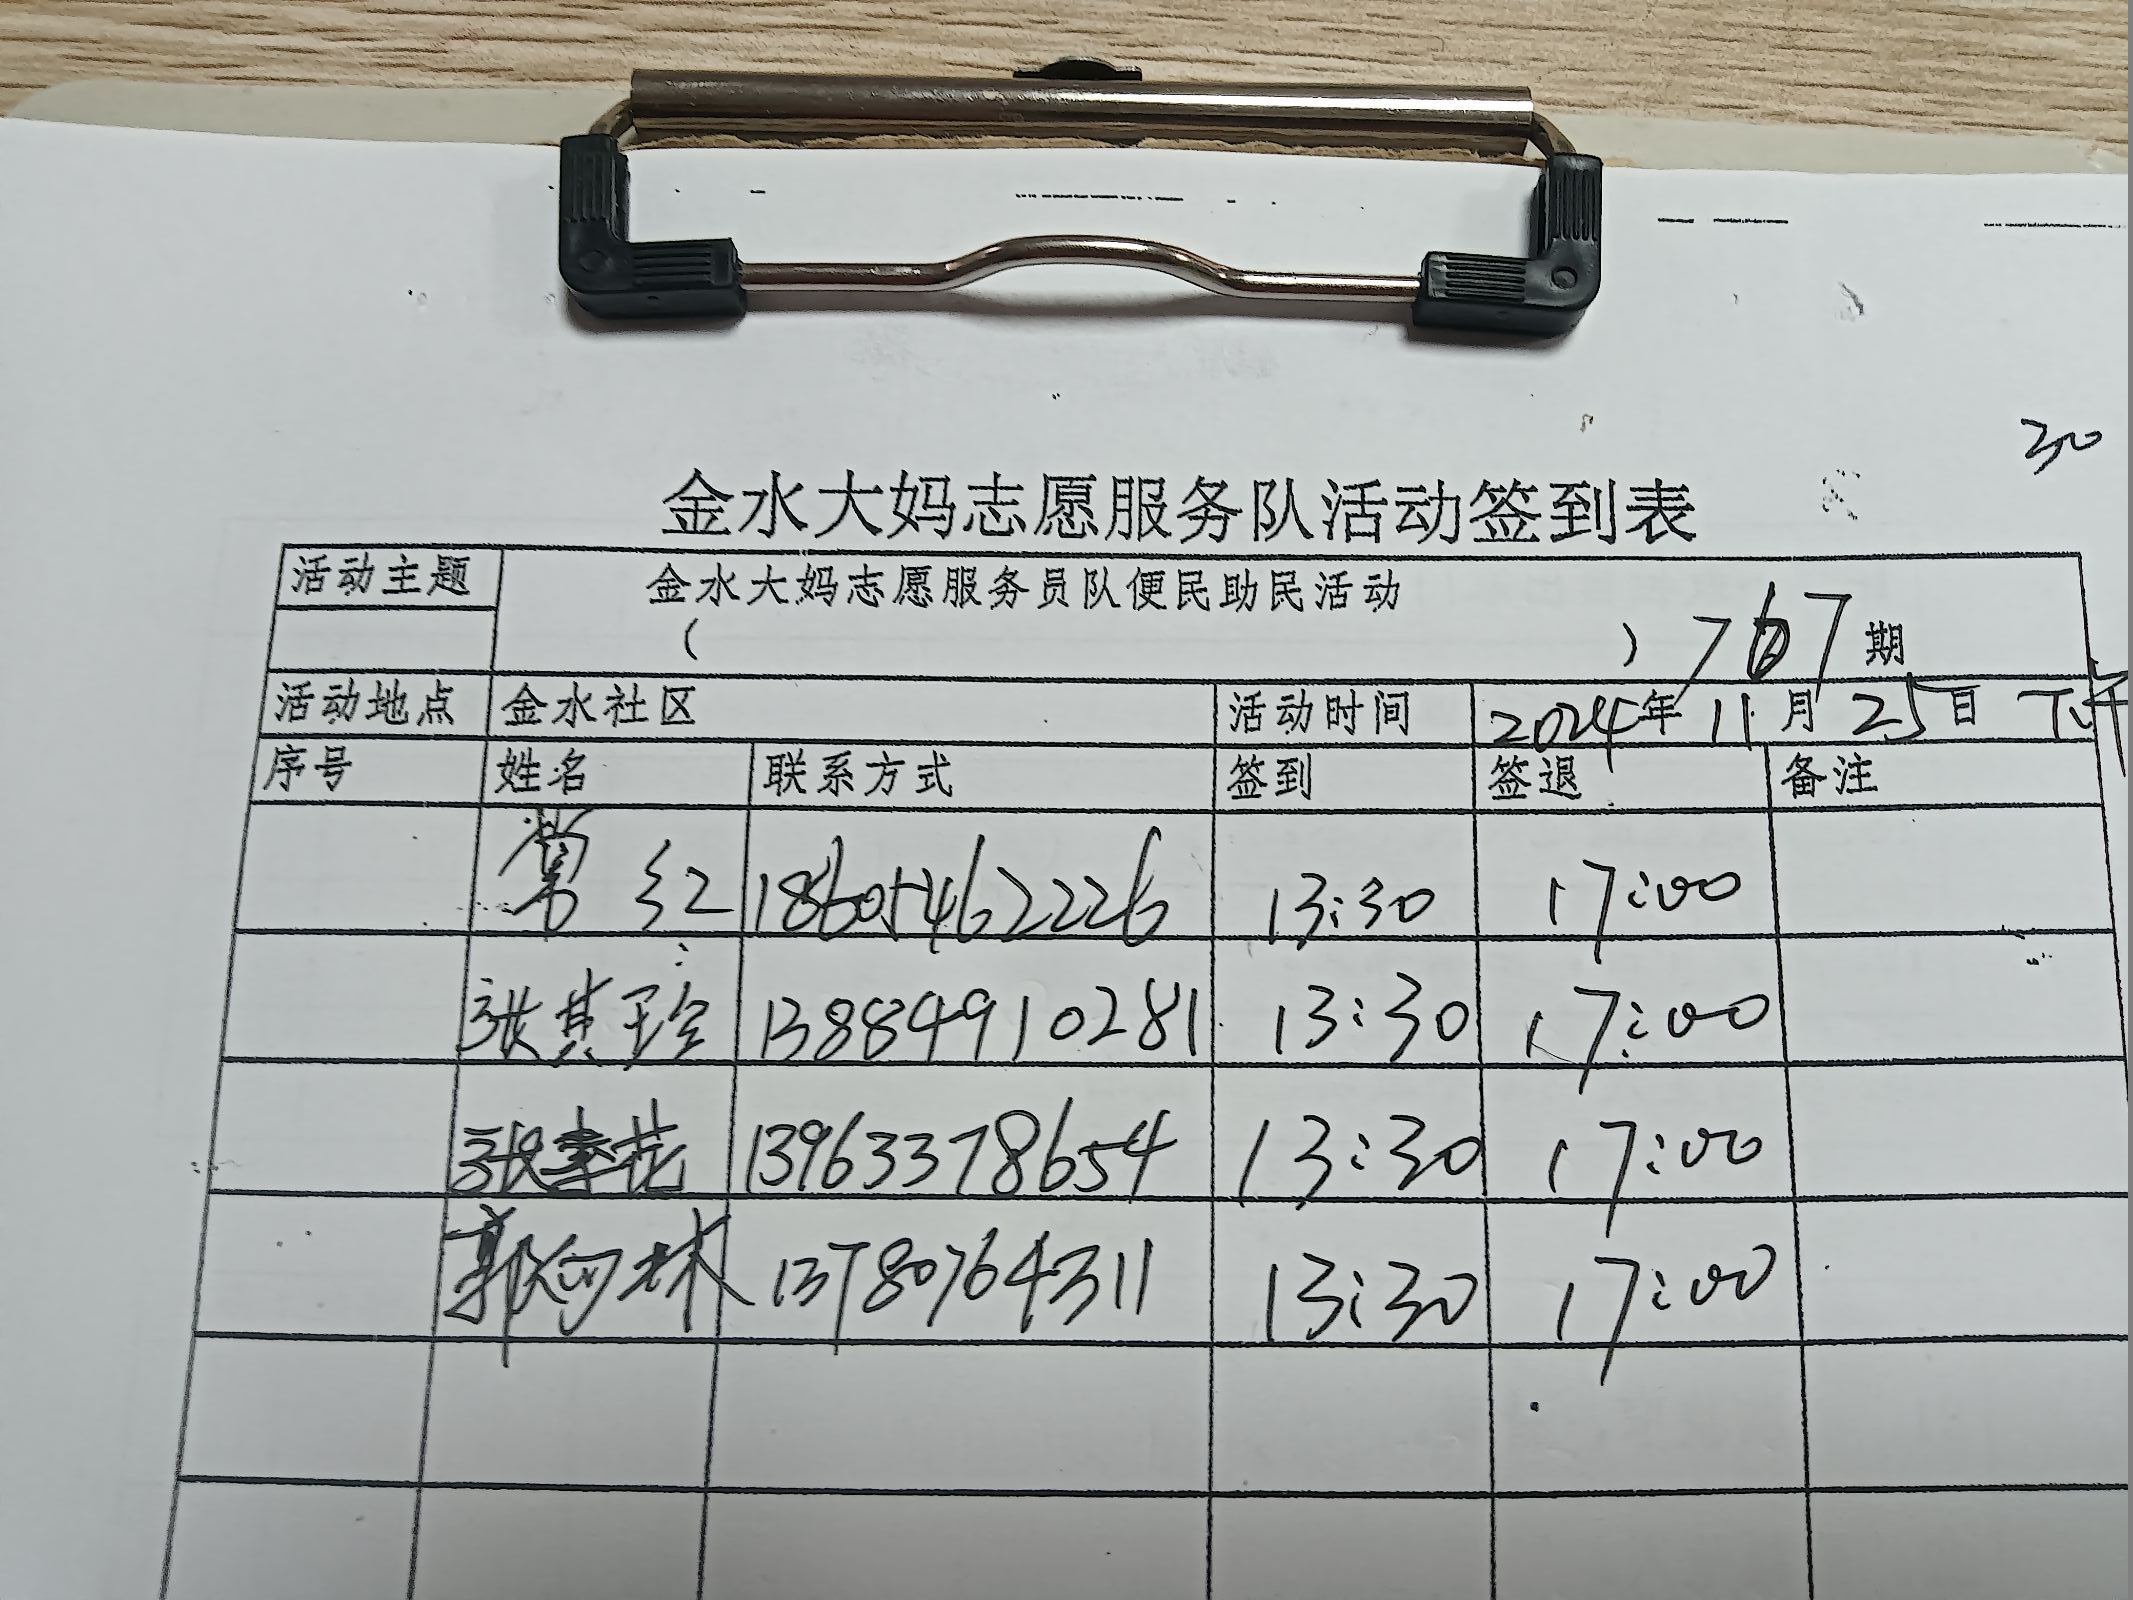 30
金水大妈志愿服务队活动签到表
活动主题 金水大妈志愿服务员队便民助民活动
( ) 767期
活动地点 金水社区 活动时间 2024年11月25日 下午
序号 姓名 联系方式 签到 签退 备注
红 18605462226 13:30 17:00
张其珍 13884910281 13:30 17:00
张 花 13963378654 13:30 17:00
郭 林 13780764311 13:30 17:00